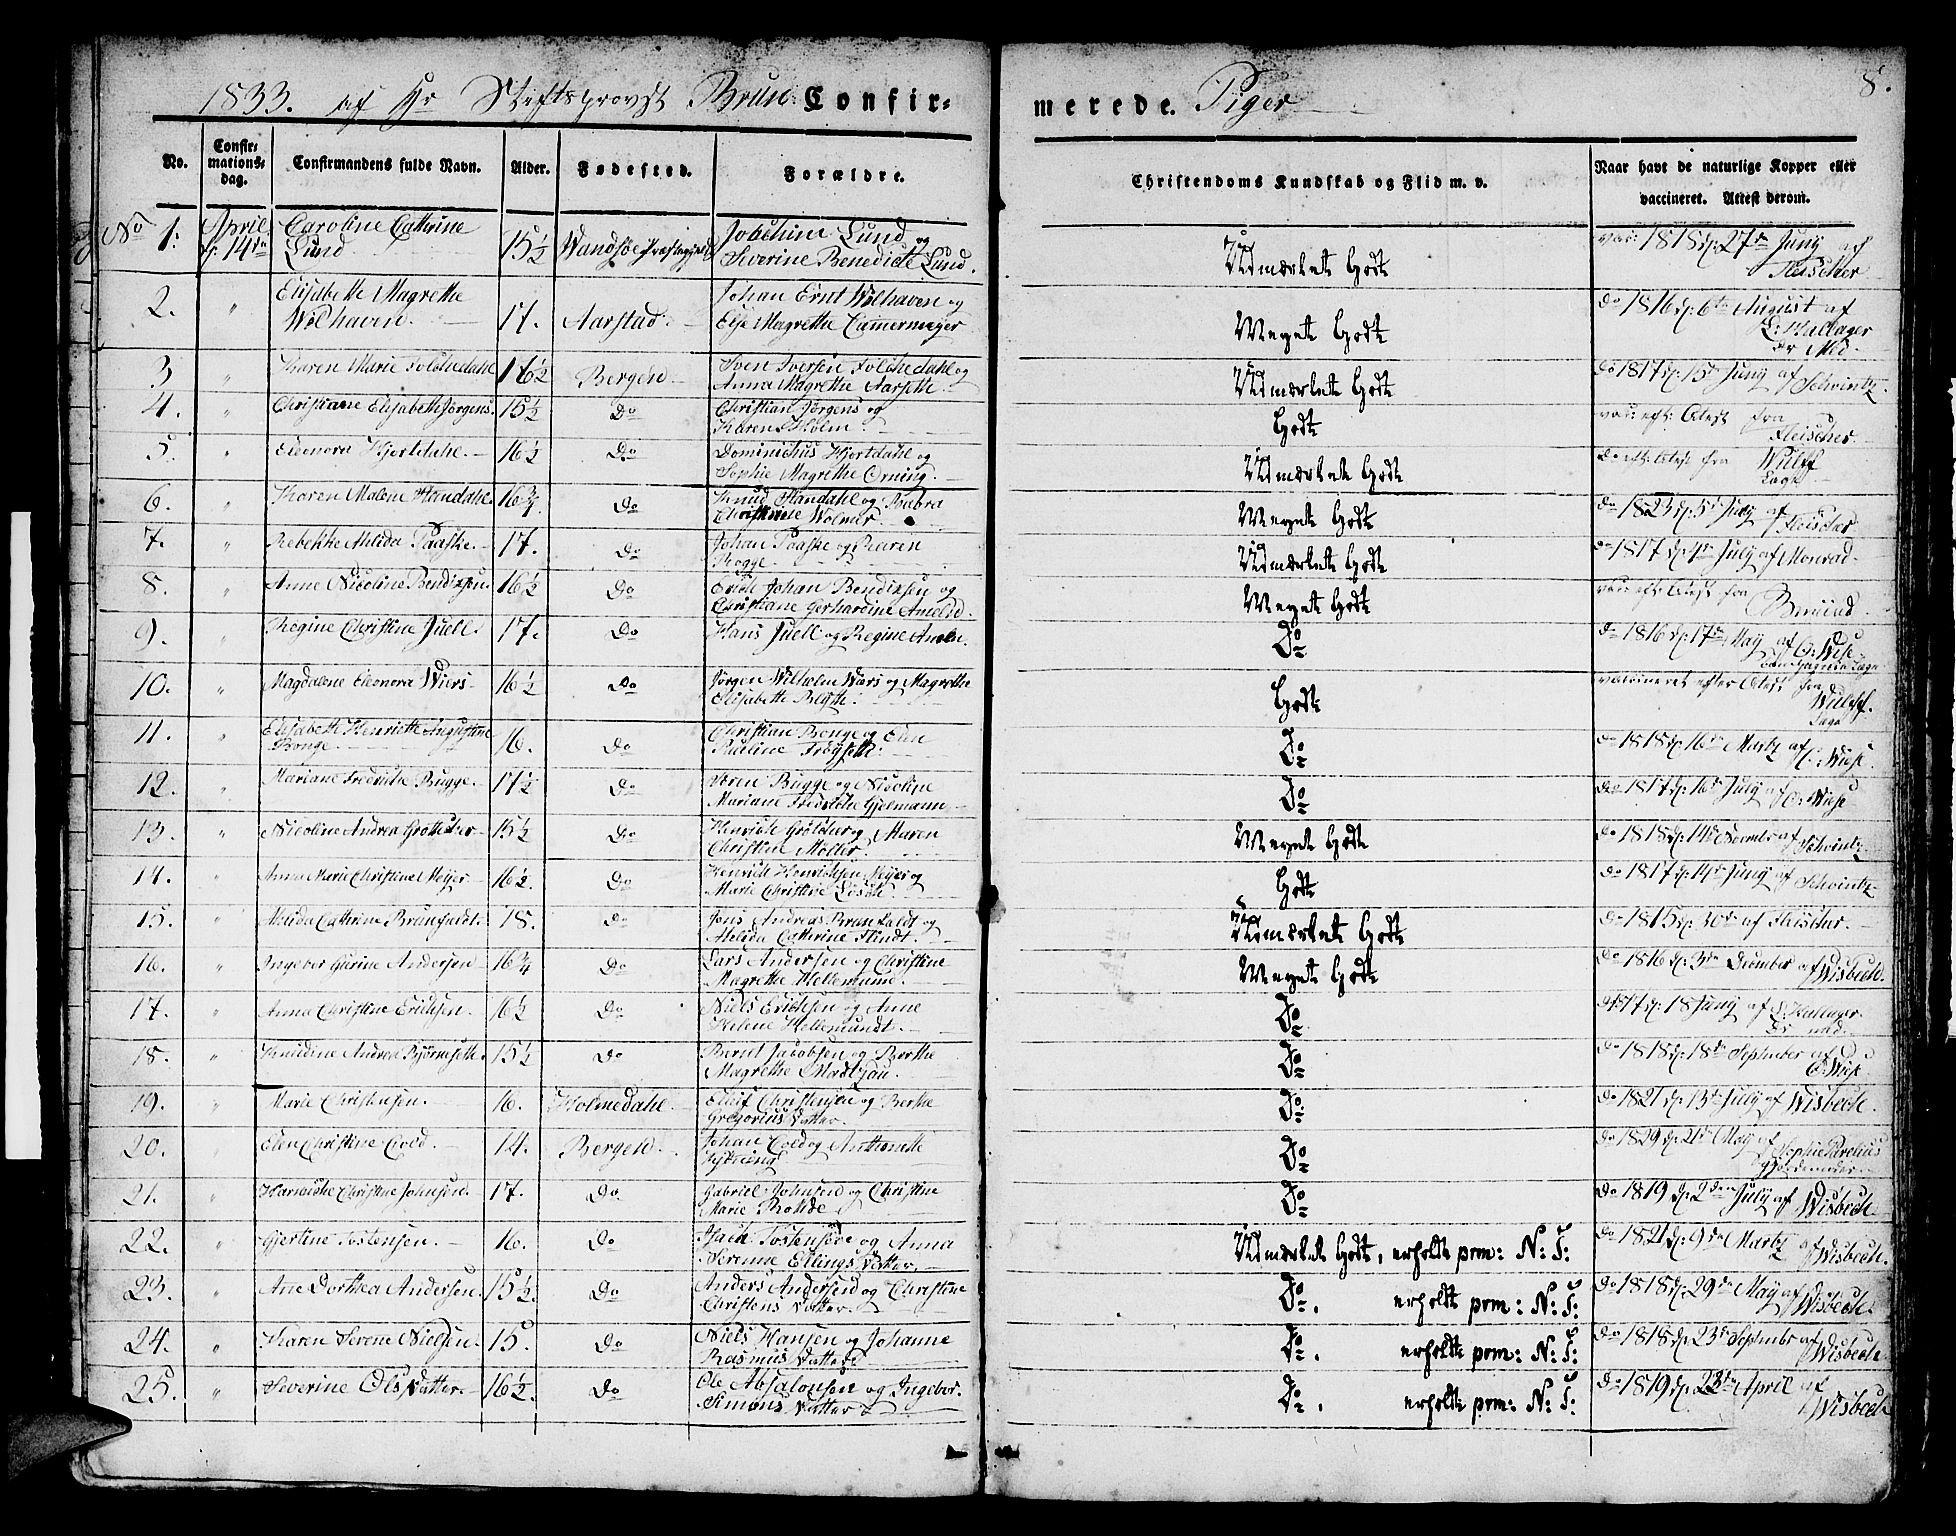 8.
1833. af Hr Stiftsprovst Brun Confir=
merede. Piger
No.
Confir=
mations=
dag.
Confirmandens fulde Navn.
Alder.
Fødested.
Forældre.
Christendoms Kundskab og Flid m. v.
Naar havt de naturlige Kopper eller
vaccineret. Attest derom.
No 1: April Caroline Cathrine
Lund 15½ Jochim Lund og
Severine Benedicte Lund.
Udmærket Godt
vac: 1818 d: 27de Juny af
Fleischer
2. " Elisabeth Magrethe
Welhaven. 17. Aarstad. Johan Ernt Welhaven og
Else Magrethe Cammermeyer
Meget Godt
do 1816 d: 6te August af
Dr Med.
3 " Karen Marie Folchedahl 16½ Bergen Iver Iversen Folchedahl og
Anna Magrethe Aarseth.
Udmærket Godt
do 1817 d: 15de Juny af Schwintz.
4. " Christiane Elisabeth Jørgens. 15½ Do Christian Jørgens og
Karen Holem.
Godt
vac: eft: Atest fra
Fleischer
5. " Eleonora Hjortdahl. 16½ Do Dominichus Hjortdahl og
Sophie Magrethe Orning.
Udmærket Godt
do eft: Atest fra Willff
6. " Karen Malene Handahl. 16¾. Do Knud Handahl og Bæbra
Christine Wolmer.
Meget Godt
do 1823 d: 5te July af
Fleischer
7. " Rebekke Alida Paaske. 17. Do Johan Paaske og Karen
Rogge.
Udmærket Godt
do 1817 d: 4de July af Monrad
8. " Anne Nicoline Bendixsen. 16½ Do Erich Johan Bendixsen og
Christiane Gerhardine Amelid.
Meget Godt
vac: eft: Atest fra
9. " Regine Christine Juell. 17. Do Hans Juell og Regine
Do
do 1816 d: 17de May af C: Wise
10. " Magdalene Eleonora Wiers 16½ Do Jørgen Wilhelm Wiers og Magrethe
Elisabeth Blytt.
Godt
vaccineret efter Atest fra
Willff.
11. " Elisabeth Henriette Augustine
Bonge. 16. Do Christian Bonge og Elen
Pauline Frøyseth.
Do
do 1818 d: 16de Martz af C: Wise
12. " Mariane Fredriche Bugge. 17½ Do Søren Bugge og Nicoline
Mariane Fredriche Gjelmann
Do
do 1817 d: 16de July af C: Wise
13. " Nicoline Andrea 15½ Do Henrich og Maren
Christine Møller.
Meget Godt
do 1818 d: 14de af Schwintz
14. " Anna Marie Christine Meyer 16½. Do Henrich Henrichsen Meyer og
Marie Christine
Godt
do 1817 d: 14de Juny af Schwintz
15. " Alida Cathrine Brunfaldt. 18. Do Jens Andreas Brunfaldt og
Alida Cathrine Flindt.
Udmærket Godt
do 1815 d: 30te af Fleischer.
16. " Ingebor Gurine Andersen 16¾ Do Lars Andersen og Christine
Magrethe Hellemund.
Meget Godt
do 1816 d: 3de December af Wisbech.
17. " Anna Christine Erichsen. 16½ Do Niels Erichsen og Anne
Helene Hellemundt.
Do
1817 d: 18 Juny af
18. " Knudine Andrea Bjørnseth. 15½ Do Berent Jacobsen og Berthe
Magrethe
Do
do 1818 d: 18de September af
C: Wise
19. " Marie Christensen. 16. Holmedahl. Christensen og Berthe
Gregorius Datter.
Do
do 1821 d: 13de July af Wisbech.
20. " Elen Christine Cold. 14. Bergen. Johan Cold og Anthonette
Do
do 1829 d: 21de May af Sophie Parelius
Gjordemoder
21. " Christine Johnsen. 17. Do Gabriel Johnsen og Christine
Marie
Do
do 1819 d: 2den July af Wisbech.
22. " Gjertine Tostensen. 16. Do Isach Tostensen og Anna
Serenne Ellings Datter.
Udmærket Godt, erholdt præm: N: T:
do 1821 d: 9de Martz
af Wisbech.
23. " Ane Dorthea Andersen. 15½. Do Anders Andersen og Christine
Christens Datter.
Do. erholdt præm: N: T:
do 1818 d: 29de May af
Wisbech.
24. " Karen Serene Nielsen. 15. Do Niels Hansen og Johanne
Rasmus Datter.
Do. erholdt præm: N: T:
do 1818 d: 23de Septembr af
Wisbech.
25. " Severine Ols Datter. 16½. Do Ole Absalonsen og Ingebor.
Simons Datter
Do. erholdt præm: N: T:
do 1819 d: 22de April af
Wisbech.